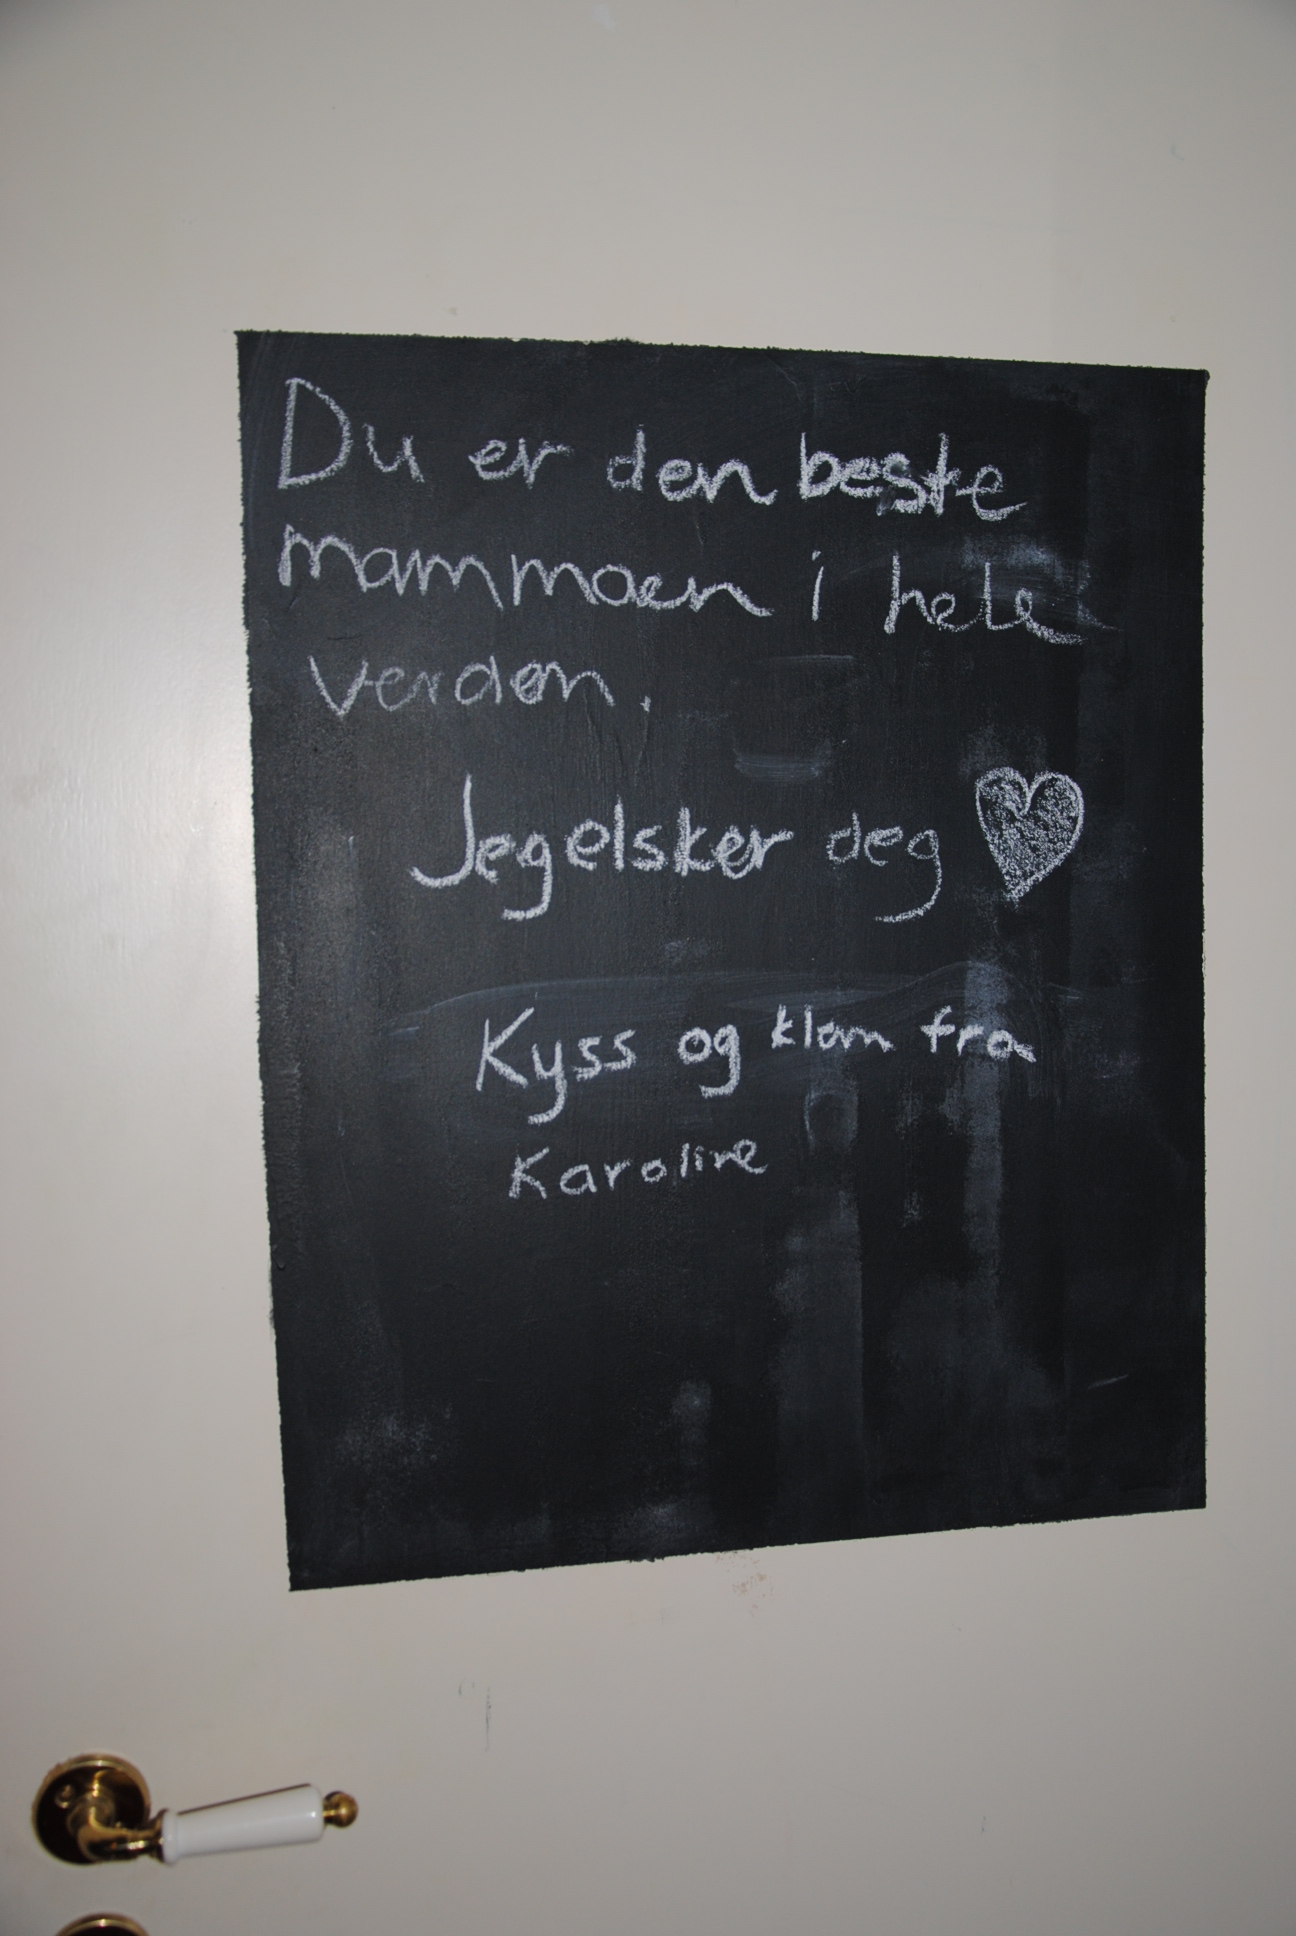 Du er den beste
mammaen i hele
verden.
Jeg elsker deg
Kyss og klem fra
Karoline